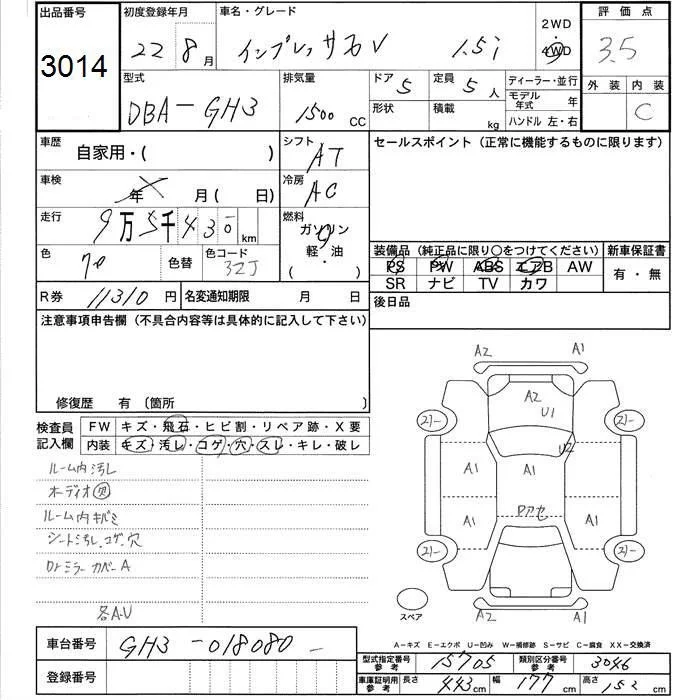 出品番号 3014
初度登録年月 22 8月
車名・グレード インプレッサスポV 1.5i
2WD
4WD
評価点 3.5
外装 内装 C
型式 DBA-GH3
排気量 1500 CC
ドア 5
定員 5人
形状
積載 kg
ディーラー・並行
モデル年式 年
ハンドル 左・右
車歴 自家用・( )
シフト AT
セールスポイント (正常に機能するものに限ります)
車検 年 月( 日)
冷房 AC
走行 9万5千430km
燃料 ガソリン
軽・油
( ・ )
色 色替
色コード 32J
装備品 (純正品に限り○をつけてください)
新車保証書
PS PW ABS エアB AW
SR ナビ TV カワ
有・無
R券 11310円
名変通知期限 月 日
後日品
注意事項申告欄 (不具合内容等は具体的に記入して下さい)
修復歴 有 〔箇所 〕
検査員記入欄
FW キズ・飛石・ヒビ割・リペア跡・X要
内装 キズ・汚レ・コゲ・穴・スレ・キレ・破レ
ルーム内汚レ
オーディオ欠
ルーム内キバミ
シート汚レ.コゲ.穴
Drミラーカバー A
各A.U
A2 A1
A2
U1
U2
A1 A1
A1 A1
A2 A1
スペア
A-キズ E-エクボ U-凹み W-補修跡 S-サビ C-腐食 XX-交換済
車台番号 GH3-018080
登録番号
型式指定番号 参考 15705
類別区分番号 参考 3046
車庫証明用 参考 長さ 443cm 幅 177cm 高さ 152cm